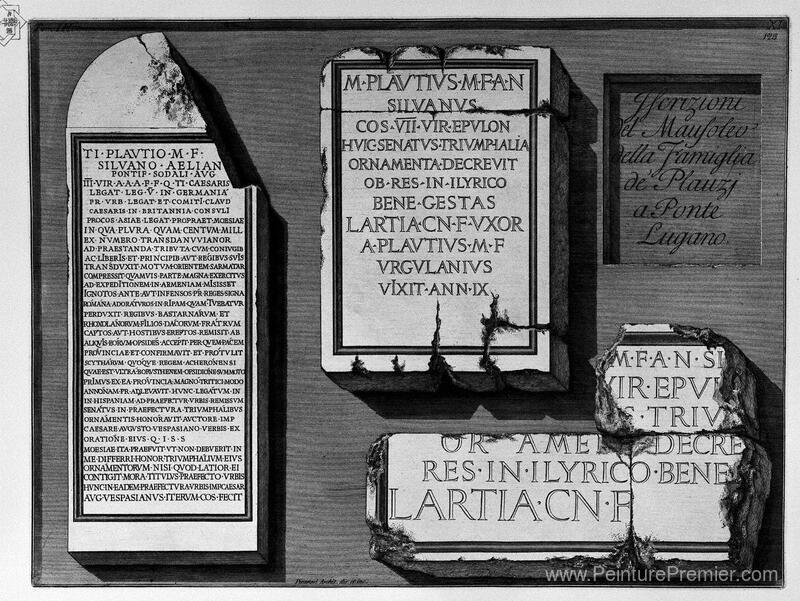 128
TI · PLAVTIO · M · F ·
SILVANO · AELIAN
PONTIF · SODALI · AVG
III · VIR · A · A · A · F · F · Q · TI · CAESARIS
LEGAT · LEG · V · IN · GERMANIA
PR · VRB · LEGAT · ET · COMITI · CLAVD
CAESARIS · IN · BRITANNIA · CONSVLI
PROCOS · ASIAE · LEGAT · PROPRAET · MOESIAE
IN · QVA · PLVRA · QVAM · CENTVM · MILL
EX · NVMERO · TRANSDANVVIANOR
AD · PRAESTANDA · TRIBVTA · CVM · CONIVGIB
AC · LIBERIS · ET · PRINCIPIB · AVT · REGIBVS · SVIS
TRANSDVXIT · MOTVM · ORIENTEM · SARMATAR
COMPRESSIT · QVAMVIS · PARTE · MAGNA · EXERCITVS
AD · EXPEDITIONEM · IN · ARMENIAM · MISISSET
IGNOTOS · ANTE · AVT · INFENSOS · P · R · REGES · SIGNA
ROMANA · ADORATVROS · IN · RIPAM · QVAM · TVEBATVR
PERDVXIT · REGIBVS · BASTARNARVM · ET
RHOXOLANORVM · FILIOS · DACORVM · FRATRVM
CAPTOS · AVT · HOSTIBVS · EREPTOS · REMISIT · AB
ALIQVIS · EORVM · OPSIDES · ACCEPIT · PER · QVEM · PACEM
PROVINCIAE · ET · CONFIRMAVIT · ET · PROTVLIT
SCYTHARVM · QVOQVE · REGEM · ACHERONENSI
QVAE · EST · VLTRA · BORVSTHENEM · OPSIDIONE · SVMMOTO
PRIMVS · EX · EA · PROVINCIA · MAGNO · TRITICI · MODO
ANNONAM · P · R · ADLEVAVIT · HVNC · LEGATVM · IN
IN · HISPANIAM · AD · PRAEFECTVR · VRBIS · REMISSVM
SENATVS · IN · PRAEFECTVRA · TRIVMPHALIBVS
ORNAMENTIS · HONORAVIT · AVCTORE · IMP
CAESARE · AVGVSTO · VESPASIANO · VERBIS · EX
ORATIONE · EIVS · Q · I · S · S
MOESIAE · ITA · PRAEFVIT · VT · NON · DEBVERIT · IN
ME · DIFFERRI · HONOR · TRIVMPHALIVM · EIVS
ORNAMENTORVM · NISI · QVOD · LATIOR · EI
CONTIGIT · MORA · TITVLVS · PRAEFECTO · VRBIS
HVNC · IN · EADEM · PRAEFECTVRA · VRBIS · IMP · CAESAR
AVG · VESPASIANVS · ITERVM · COS · FECIT
M · PLAVTIVS · M · F · A · N
SILVANVS
COS · VII · VIR · EPVLON
HVIC · SENATVS · TRIVMPHALIA
ORNAMENTA · DECREVIT
OB · RES · IN · ILYRICO
BENE · GESTAS
LARTIA · CN · F · VXOR
A · PLAVTIVS · M · F
VRGVLANIVS
VIXIT · ANN · IX
Iscrizioni
del Mausoleo
della Famiglia
de' Plauzj
a Ponte
Lugano.
M · F · A · N · SI
VIR · EPV
S · TRIV
OR AMEN DECRE
RES · IN · ILYRICO · BENE
LARTIA · CN · F
Piranesi Archit. dis. et inc.
www.PeinturePremier.com